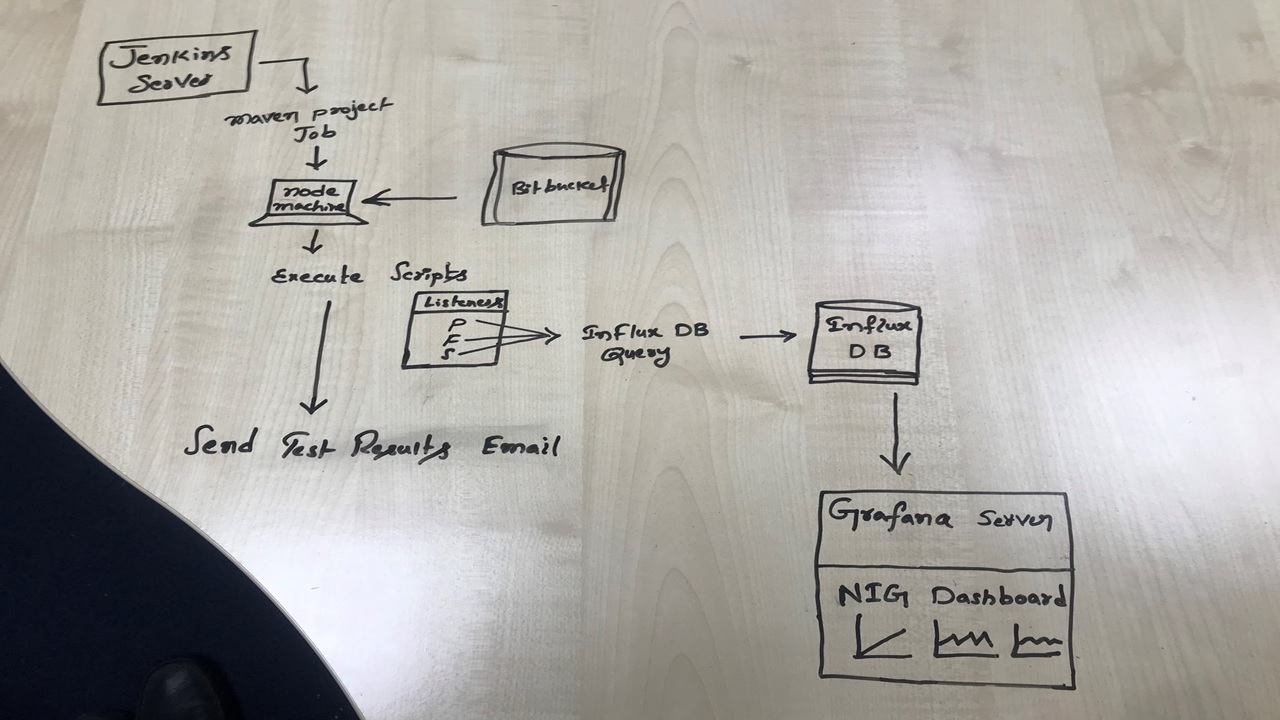 Jenkins
Server
maven project
Job
node
machine
Bitbucket
Execute Scripts
Listeners
P
F
S
InFlux DB
Query
Influx
DB
Send Test Results Email
Grafana Server
NIG Dashboard